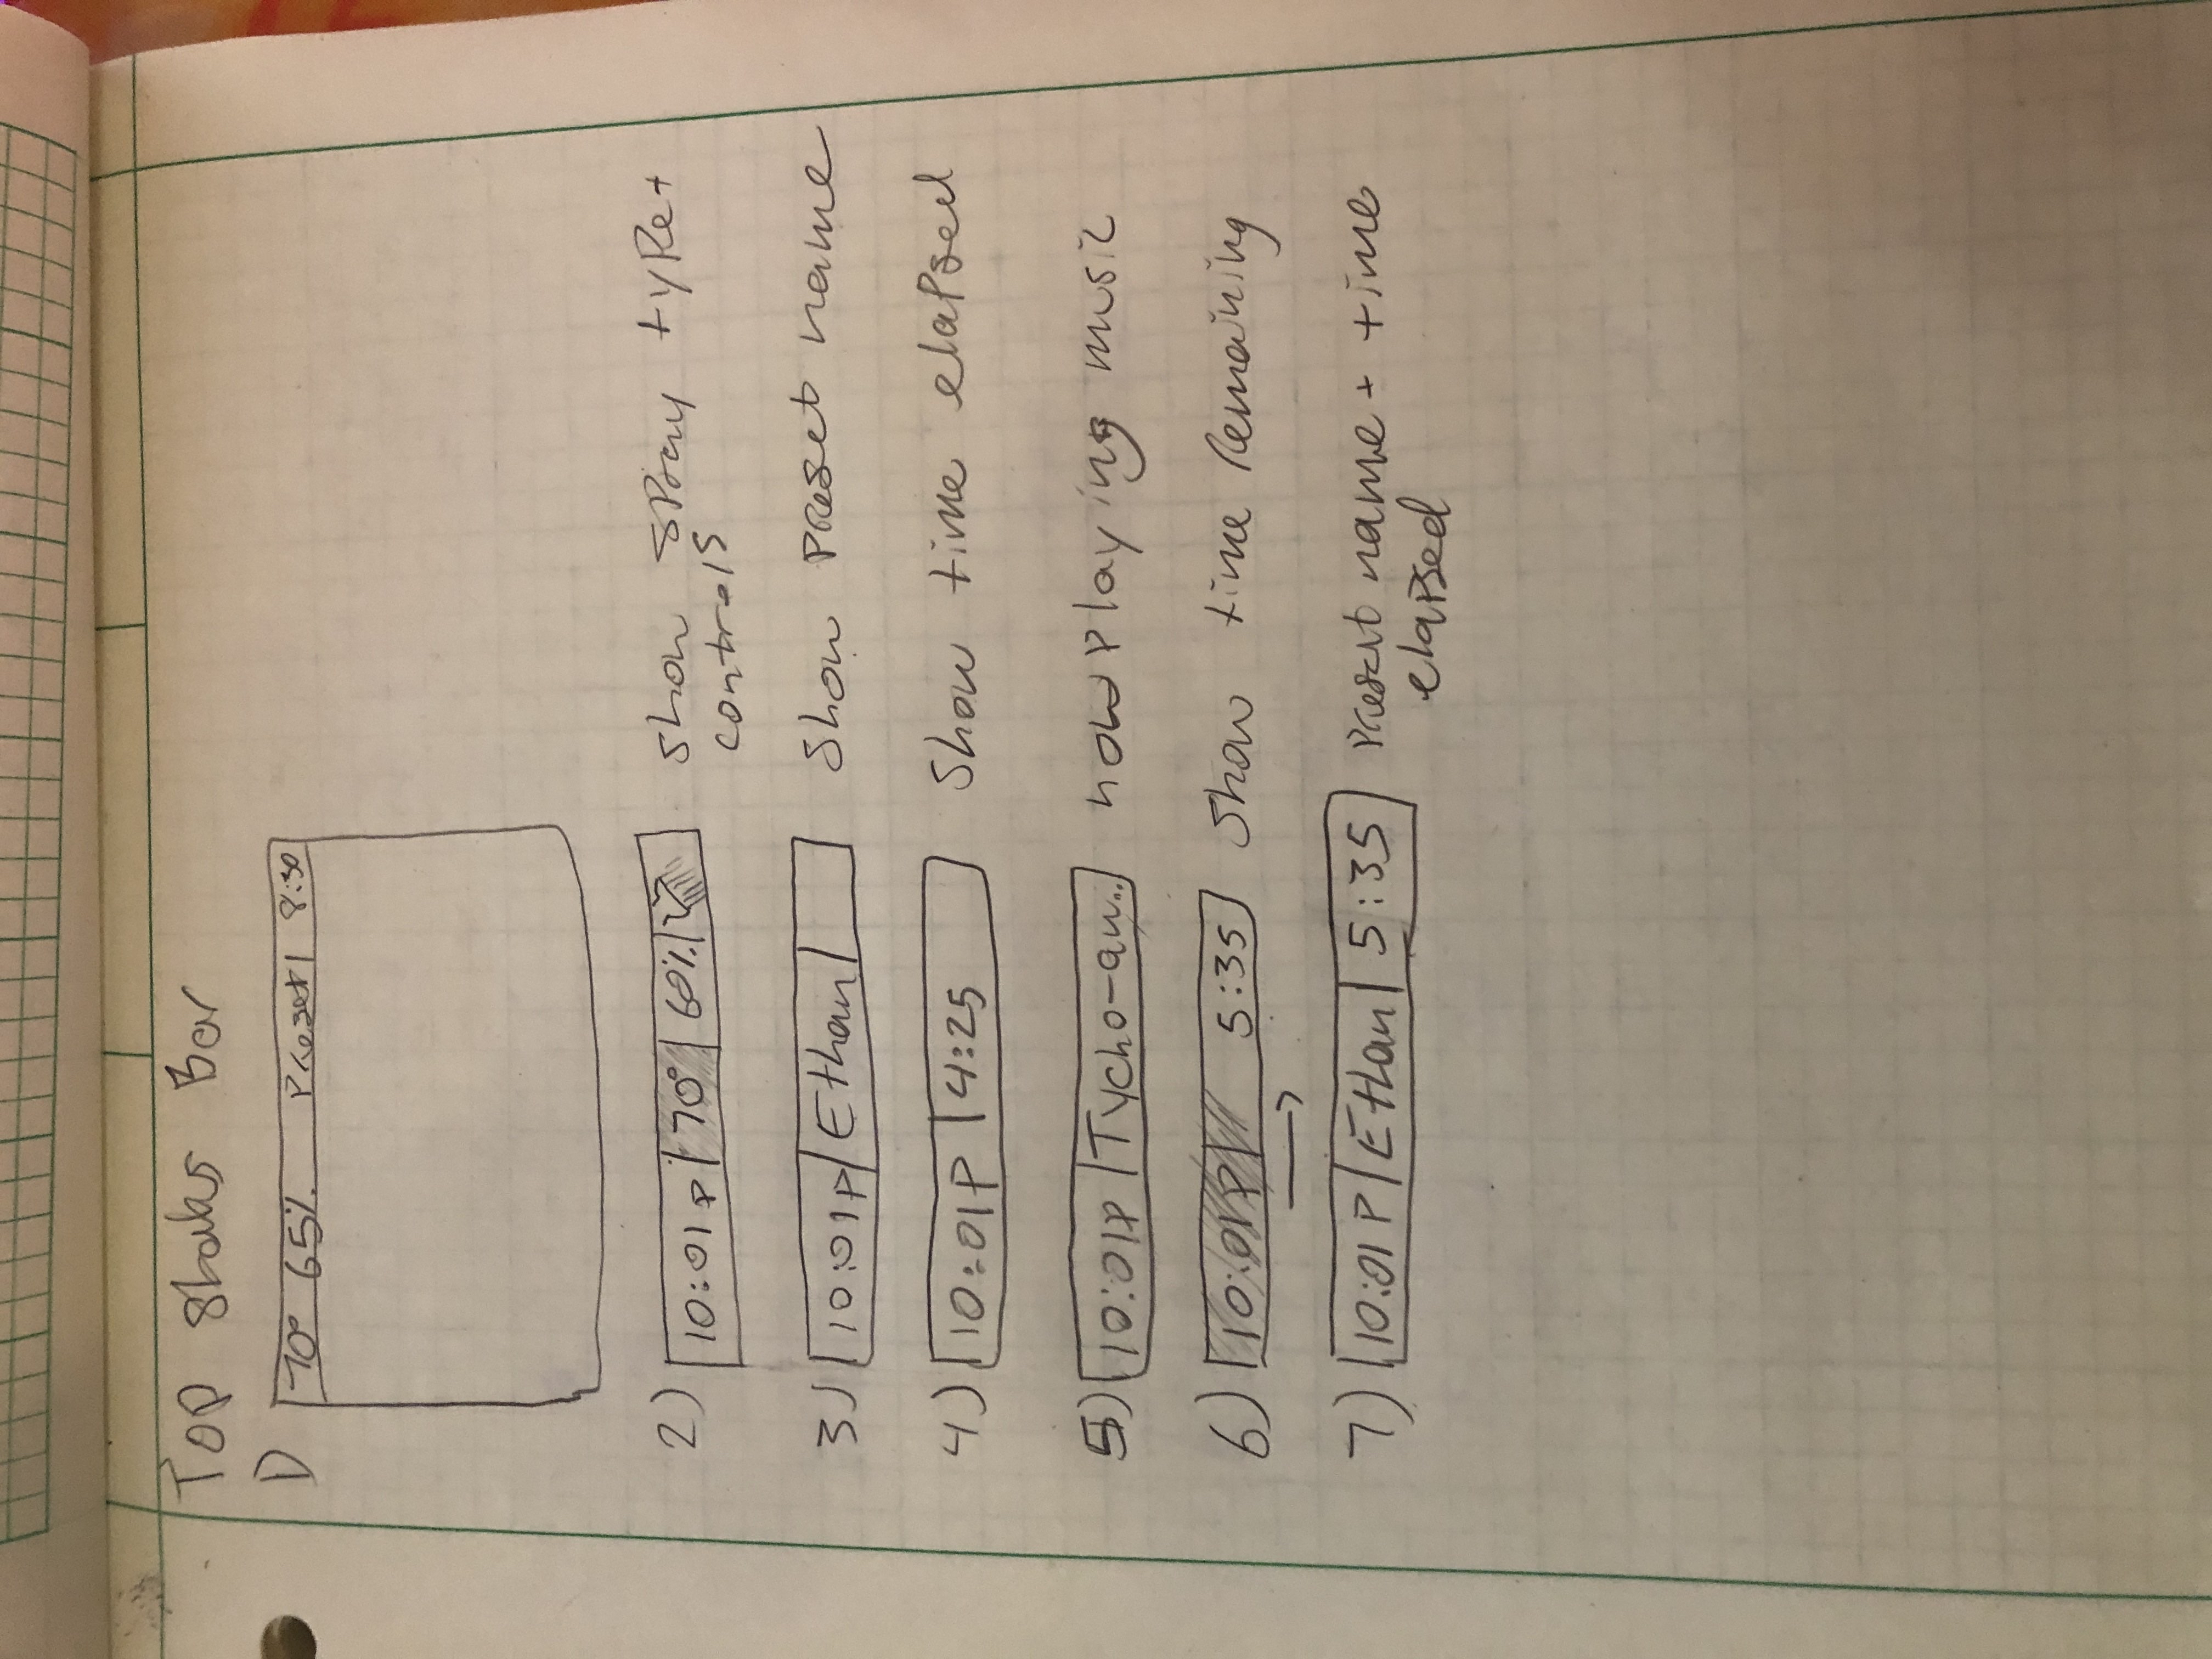 Top Status Bar
1)
70° 65% Preset 1 8:30
2) 10:01P 70° 60% Show spray type +
controls
3) 10:01P Ethan Show preset name
4) 10:01P 4:25 Show time elapsed
5) 10:01P Tycho-aw... now playing music
6) 10:01P 5:35 Show time remaining
7) 10:01P Ethan 5:35 Preset name + time
elapsed